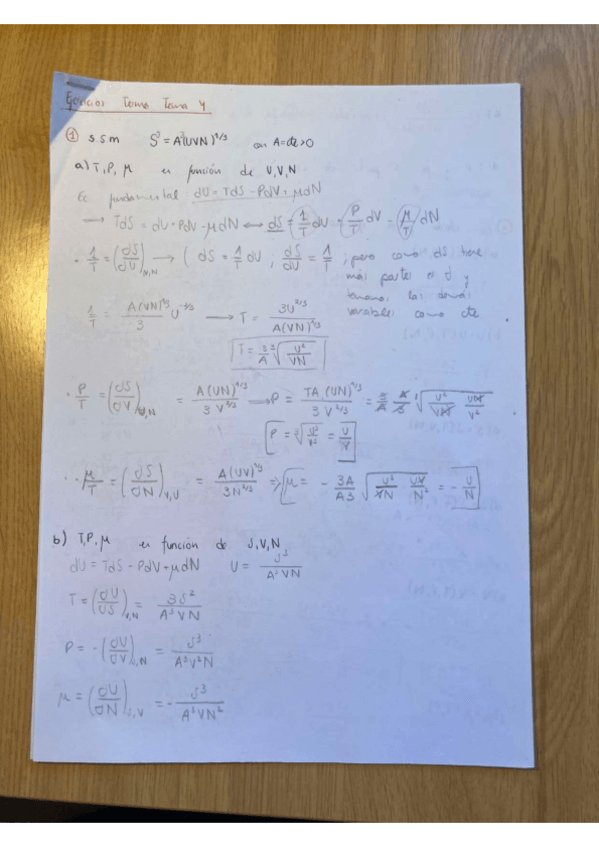 Ejercicios Tomo Tema 4
① s.s.m S³ = A³(UVN)^1/3 con A=cte>0
a) T, P, μ en función de U, V, N
Ec fundamental dU = TdS - PdV + μdN
→ TdS = dU + PdV - μdN ↔ dS = 1/T dU + P/T dV - μ/T dN
· 1/T = (dS/dU)V,N → ( dS = 1/T dU ; dS/dU = 1/T ; pero como dS tiene
más partes
tomamos las demás
variables como cte
1/T = A(VN)^1/3 / 3 U^-2/3 → T = 3U^2/3 / A(VN)^1/3
T = 3/A ∛(U²/VN)
· P/T = (dS/dV)U,N = A(UN)^1/3 / 3V^2/3 → P = TA(UN)^1/3 / 3V^2/3 = 3/A A/3 ∛(U²/VN UN/V²)
P = ∛(U³/V³) = U/V
· -μ/T = (dS/dN)V,U = A(UV)^1/3 / 3N^2/3 ⇒ μ = - 3A/A3 √(U²/VN UV/N²) = - U/N
b) T, P, μ en función de S, V, N
dU = TdS - PdV + μdN U = S³/A³VN
T = (dU/dS)V,N = 3S²/A³VN
P = -(dU/dV)S,N = S³/A³V²N
μ = (dU/dN)S,V = - S³/A³VN²